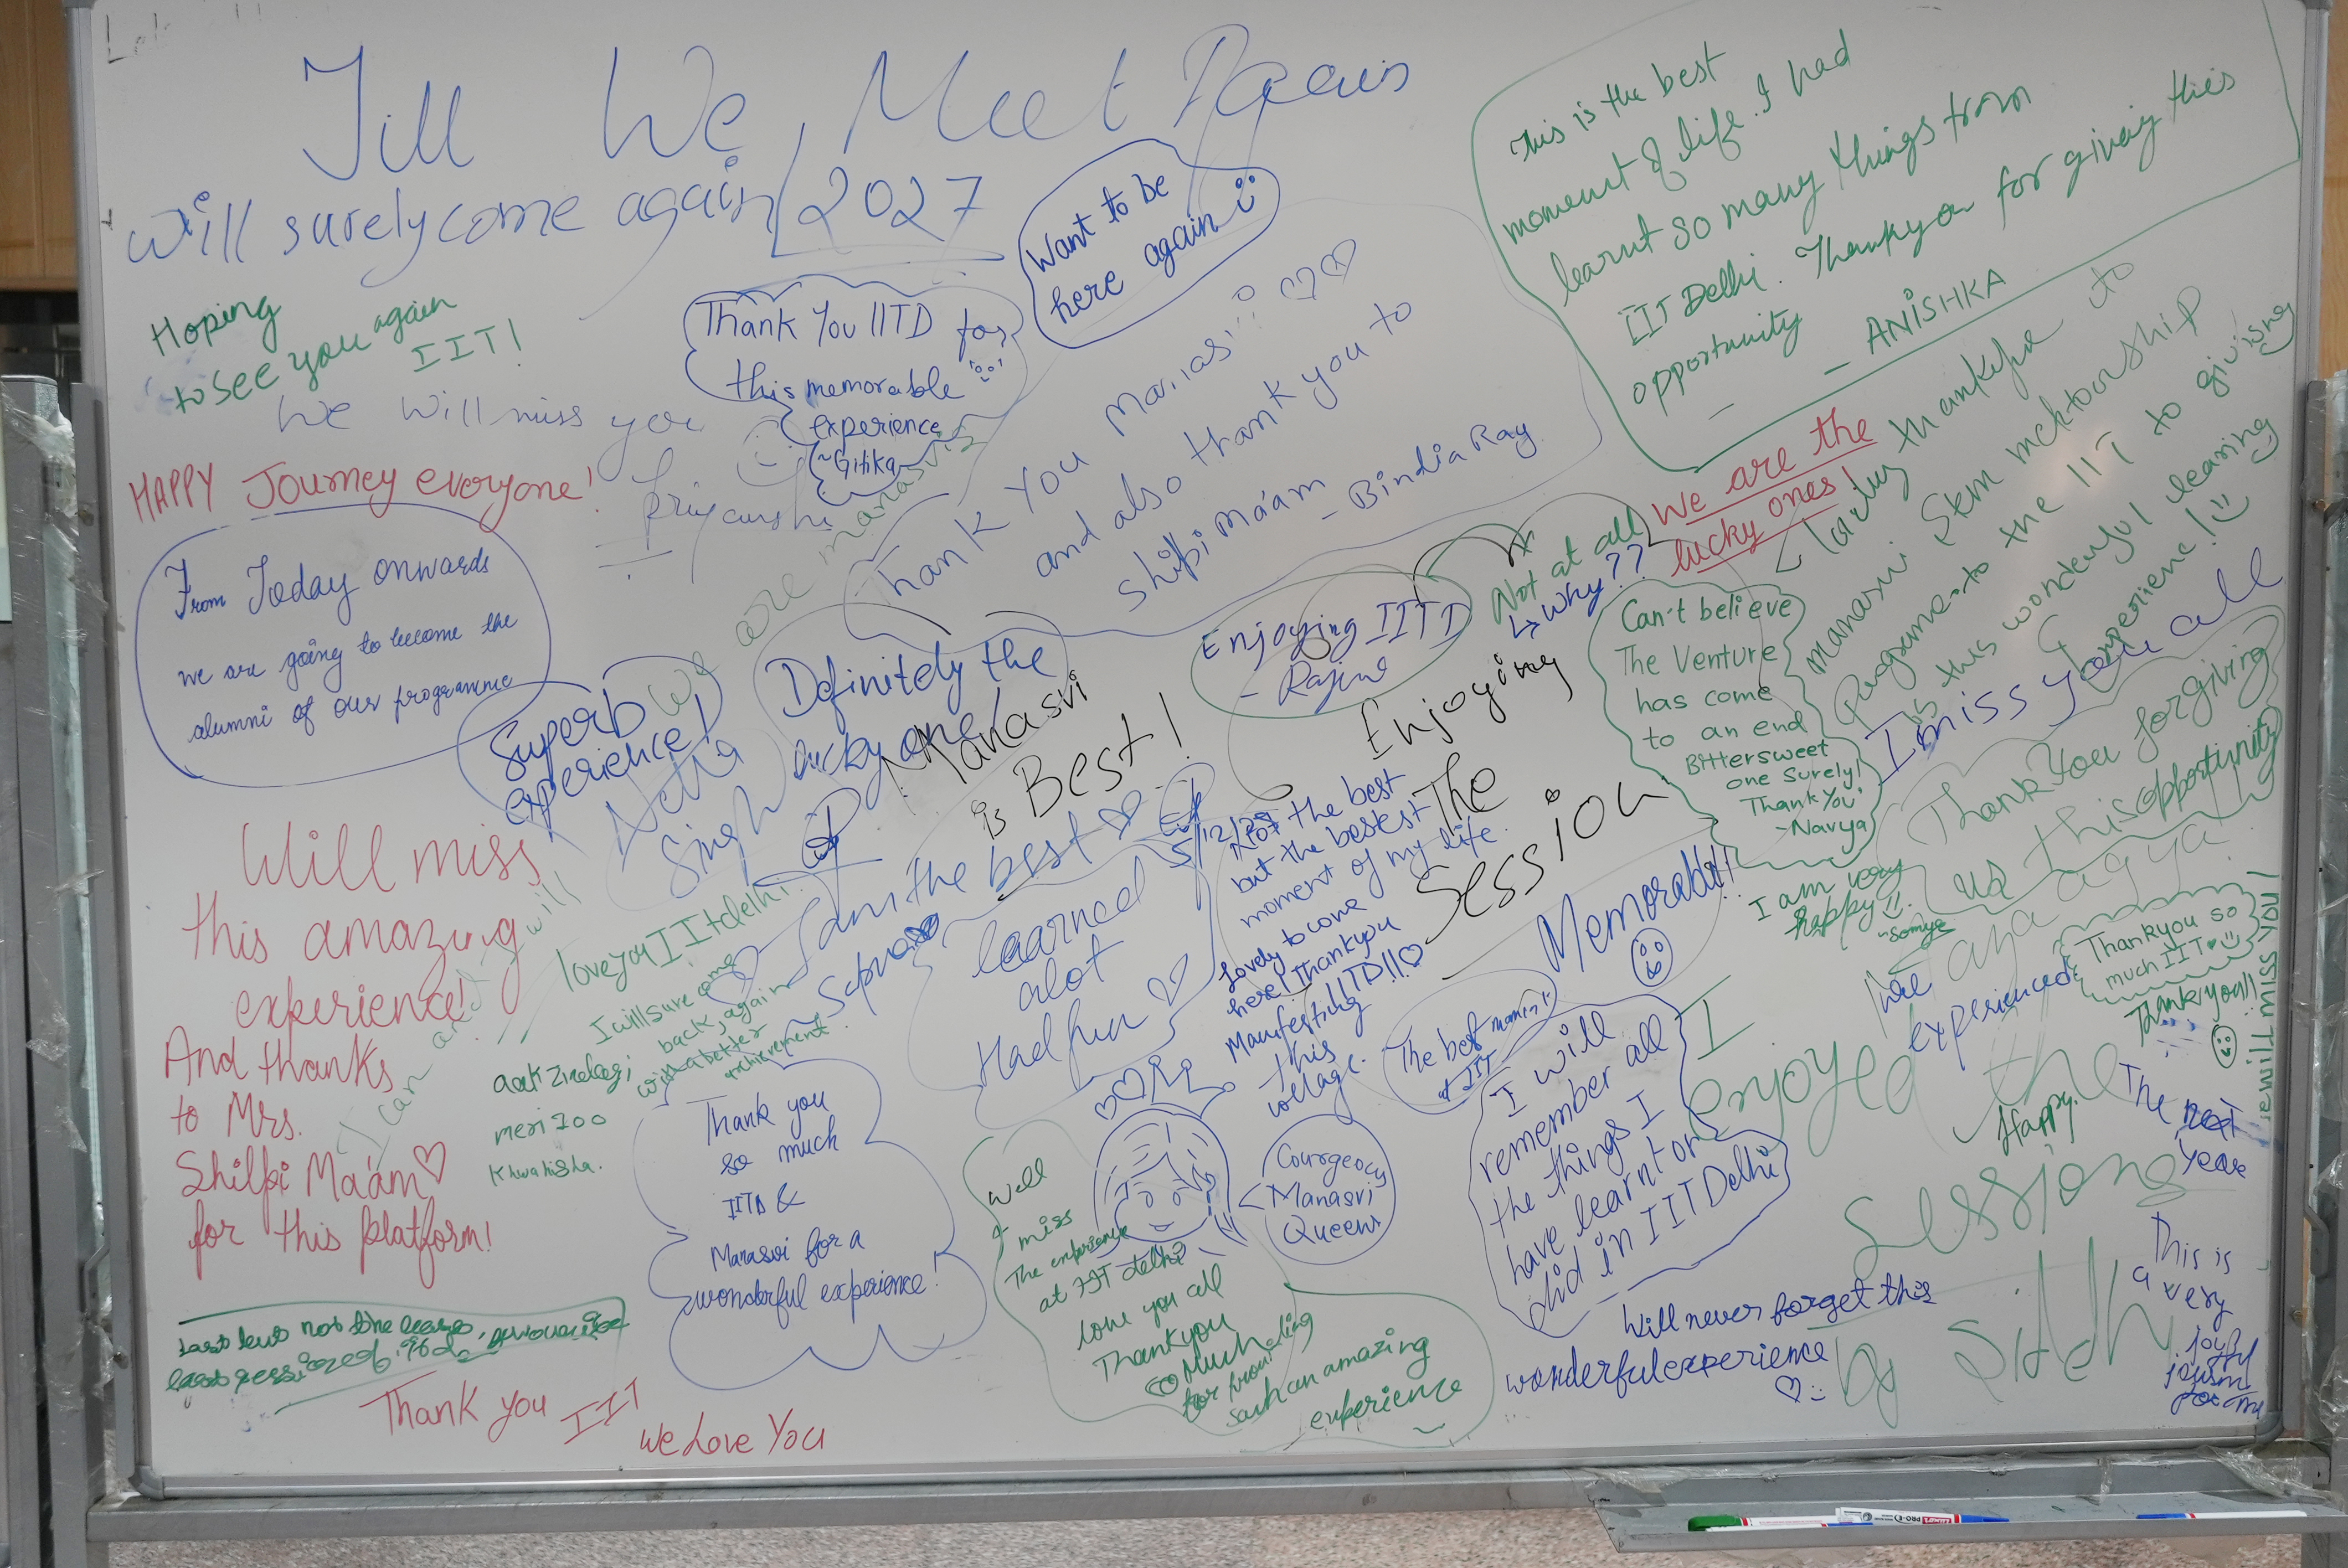 Till We Meet Again
will surely come again 2027
Want to be
here again
This is the best
moment of life. I had
learnt so many things from
IIT Delhi. Thankyou for giving this
opportunity
- ANISHKA
Hoping
to see you again
IIT!
Thank You IITD for
this memorable
experience
~Gitika
We will miss you
Priyanshi
HAPPY Journey everyone!
Thank you Manasvi
and also thank you to
Shilpi Ma'am
- Bindia Ray
We are manasvis
We are the
lucky ones!
Not at all
Why??
thankyou to
manasvi Stem mektourship
Programe to the IIT to giving
us this wonderful learing
experience!
From Today onwards
we are going to become the
alumni of our programme
Superb
experience!
Definitely the
lucky one!
Manasvi
is Best!
Enjoying IITD
- Rajine
Enjoying
The
Session
Can't believe
The Venture
has come
to an end
Bittersweet
one Surely!
Thank You!
~Navya
I miss you all
Thank You for giving
us this opportunity
Neha
Singh
I am the best
5/12/25
Not the best
but the bestest
moment of my life.
Lovely to come
here! Thankyou
IITD!!
Manifesting
this
college.
learned
alot
Had fun
Memorable!!
I am very
happy!!
~Somya
Will miss
this amazing
experience!
And thanks
to Mrs.
Shilpi Ma'am
for this platform!
I can and I will
love you IIT delhi
I will sure come
back again
with a better
achievement
aak Zindagi
meri 100
Khwahisha.
Thank you
so much
IITD &
Manasvi for a
wonderful experience!
The best
at IIT
I will
remember all
the things I
have learnt or
did in IIT Delhi
maza agya
experienced
Thankyou so
much IIT
Thankyou!!
I will miss you
I
enjoyed the
Sessions
by Sidh
Happy.
The next
year
This is
a very
joyful
Courgeocy
Manasvi
Queens
Well
I miss
The experience
at IIT delhi
love you all
Thankyou
so Much
for providing
such an amazing
experience
Will never forget this
wonderful experience
Last but not the
Thank you IIT
We Love You